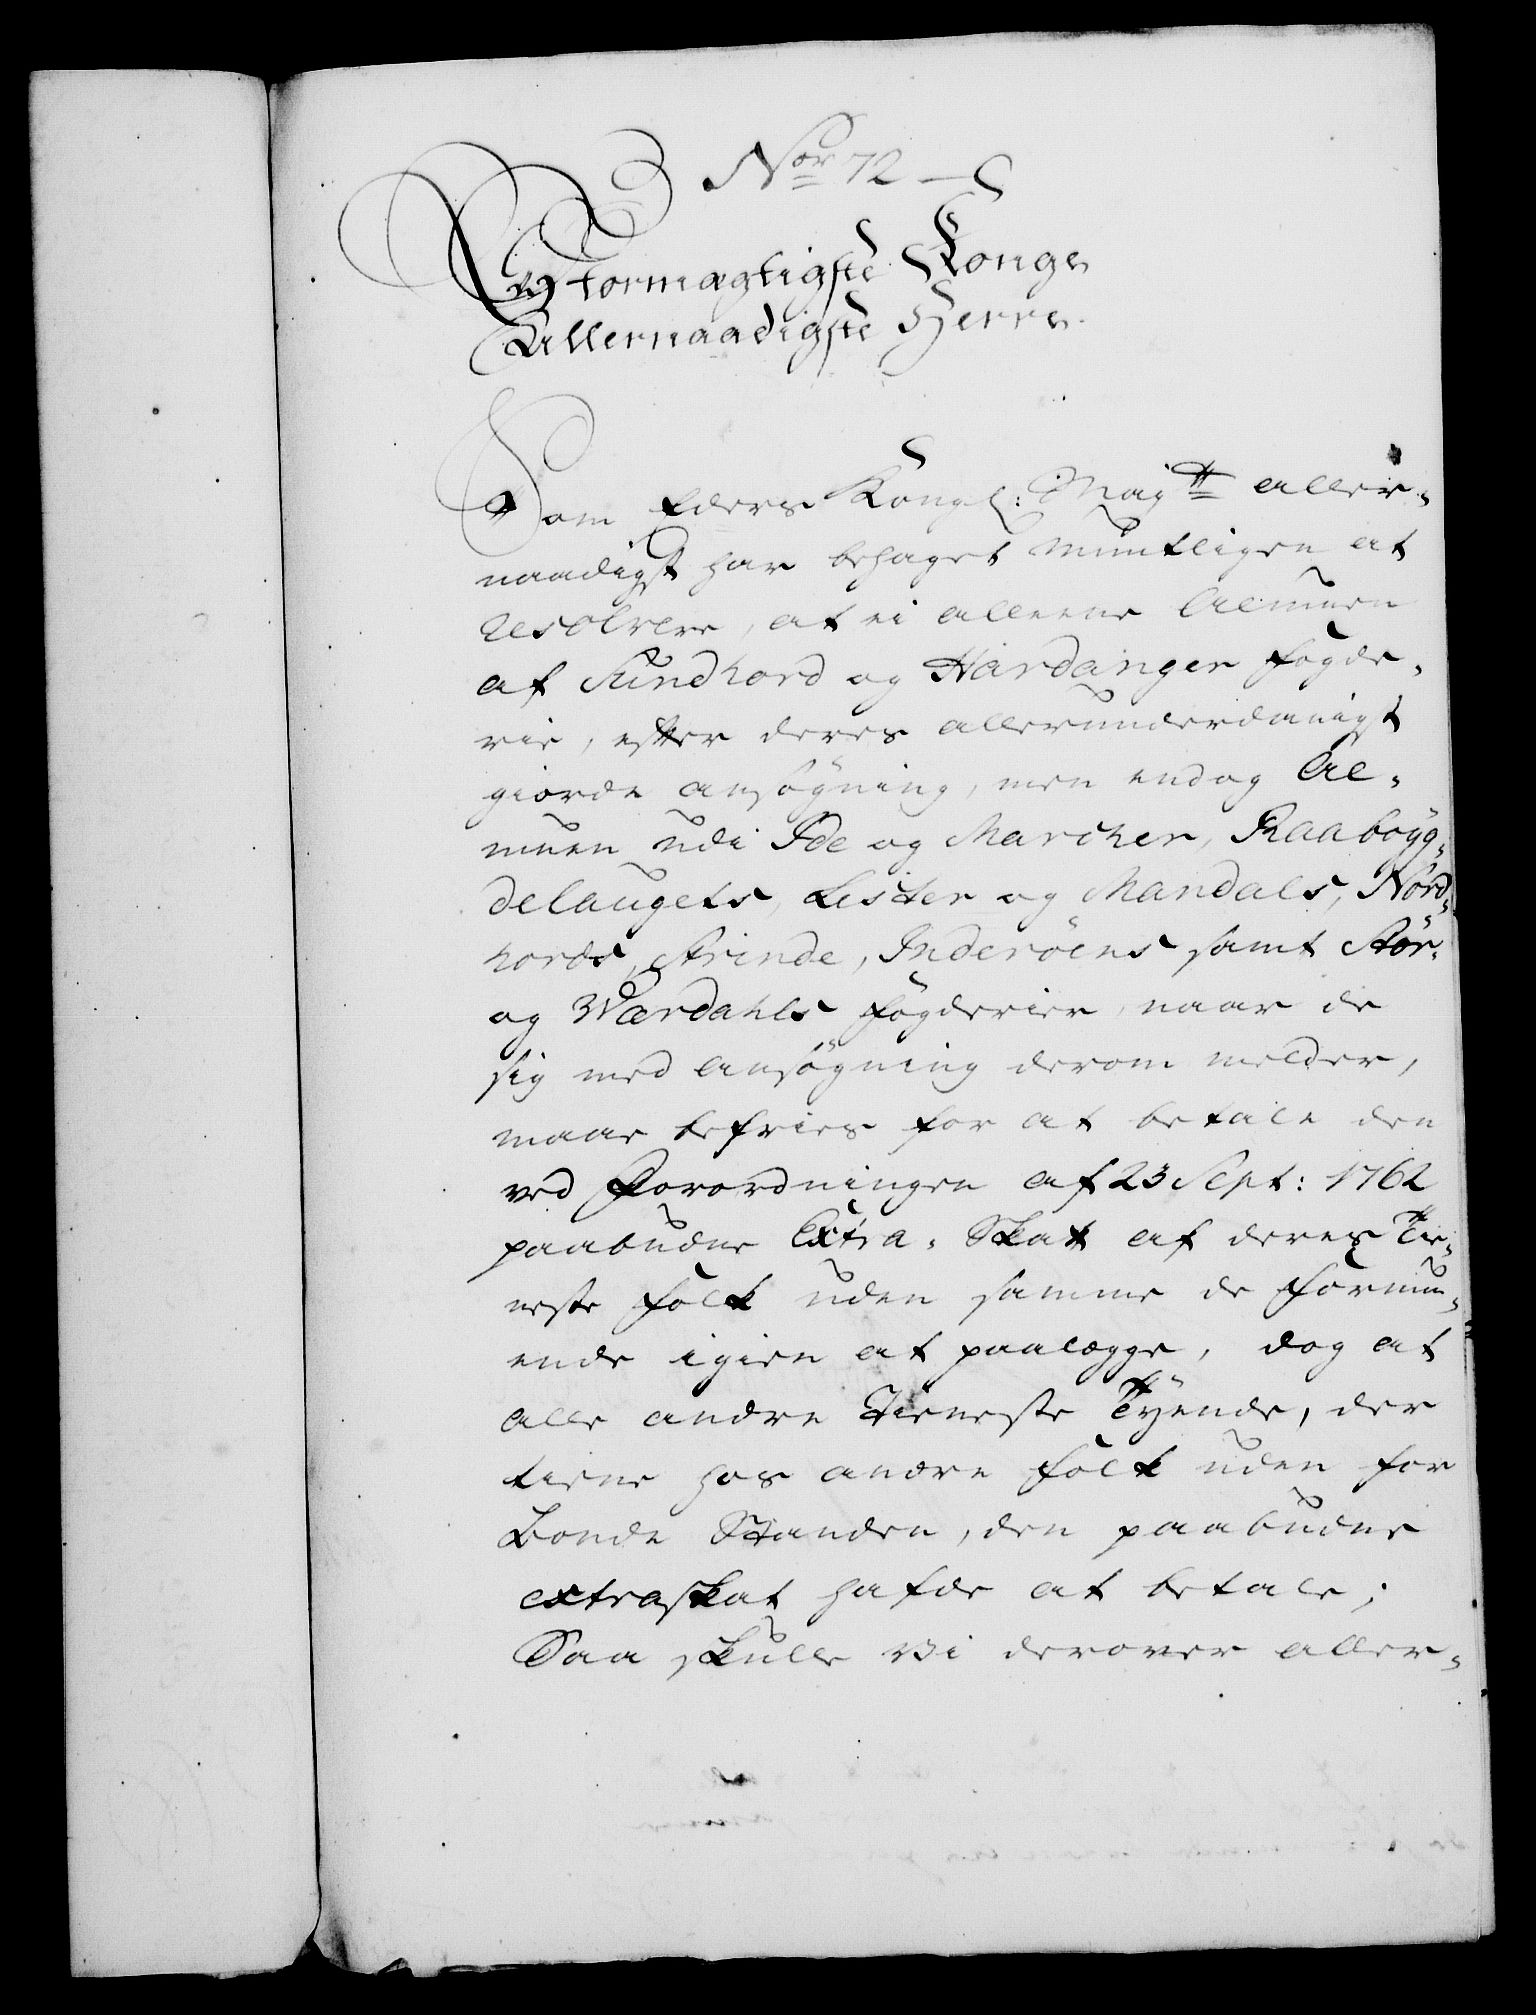 Nor 72
Stormægtigste Konge
Allernaadigste Herre.
Som Eders Kongl: Majtt aller-
naadigst har behaget mundtligen at
resolvere, at ei alleene Almuen
af Sundhord og Hardanger Fogde-
rie, efter deres allerunderdanigst
giorde ansøgning, men endog Al-
muen udi Ide og Marcher, Raabøyg-
delaugets, Lister og Mandals, Nord-
hords, Strinde, Inderøens samt Stør-
og Værdahls Fogderier, naar de
sig med Ansøgning derom melder,
maae befries for at betale den
ved Forordningen af 23 Sept: 1762
paabudne Extra-Skat af deres Tie-
neste Folk uden samme de Formu-
ende igien at paalægge, dog at
alle andre Tieneste Tyende, der
tiene hos andre Folk uden for
Bonde Standen, den paabudne
extraskat hafde at betale;
Saa skulle vi derover aller-